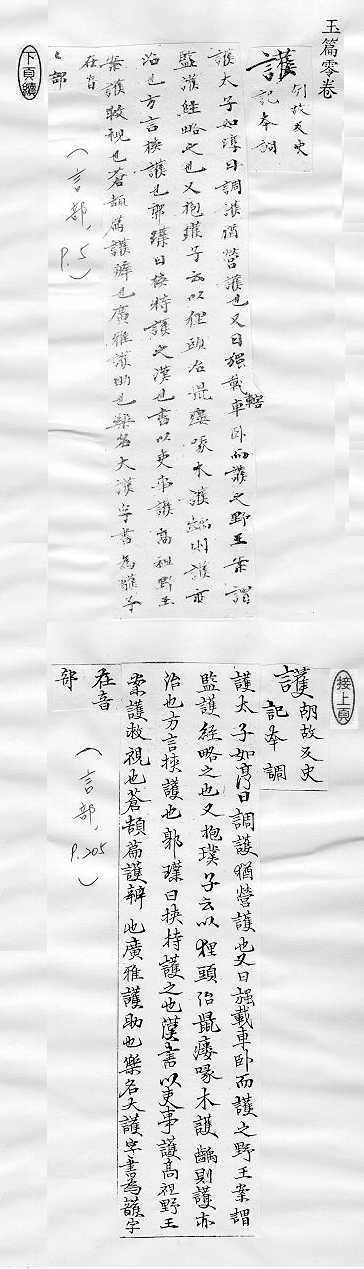 玉篇零卷
護
胡故反史
記奉調
護太子如淳曰調護猶營護也又曰強載車臥而護之野王案謂
轄
監護經略之也又抱璞子云以狸頭治鼠瘻啄木護齲則護亦
治也方言挾護也郭璞曰挾持護之漢也書以吏事護高祖野王
案護救視也蒼頡篇護辨也廣雅護助也樂名大護字書為頀字
在音
部
(言部,P.5)
下頁續
接上頁
護
胡故反史
記奉調
護太子如淳曰調護猶營護也又曰強載車卧而護之野王案謂
監護經略之也又抱璞子云以狸頭治鼠瘻啄木護齲則護亦
治也方言挾護也郭璞曰挾持護之也漢書以吏事護高祖野王
案護救視也蒼頡篇護辨也廣雅護助也樂名大護字書為頀字
在音
部
(言部,P.205)